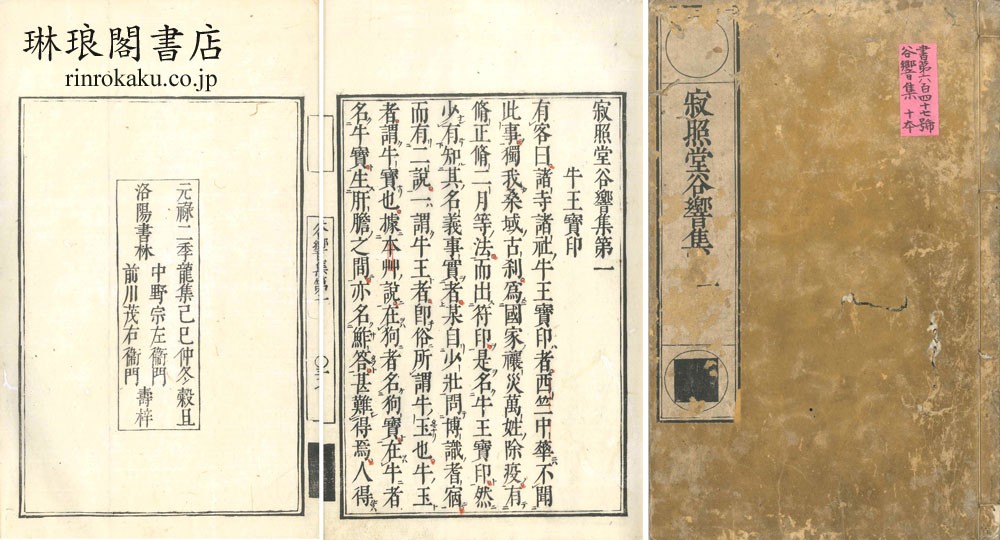 琳琅閣書店
rinrokaku.co.jp
書第六百四十七號
谷響集 十本
寂照堂谷響集 一
寂照堂谷響集第一
牛王寶印
有客曰諸寺諸社牛王寶印者西竺中華不聞
此事獨我桑域古刹為國家禳災萬姓除疫有
脩正脩二月等法而出符印是名牛王寶印然
少有知其名義事實者某自少壯問博識耆宿
而有二說一謂牛王者卽俗所謂牛玉也牛玉
者謂牛寶也據本艸說在狗者名狗寶在牛者
名牛寶生肝膽之間亦名鮓答甚難得焉人得
谷響集第一
元祿二季龍集己巳仲冬穀旦
洛陽書林
中野宗左衞門
前川茂右衞門
壽梓